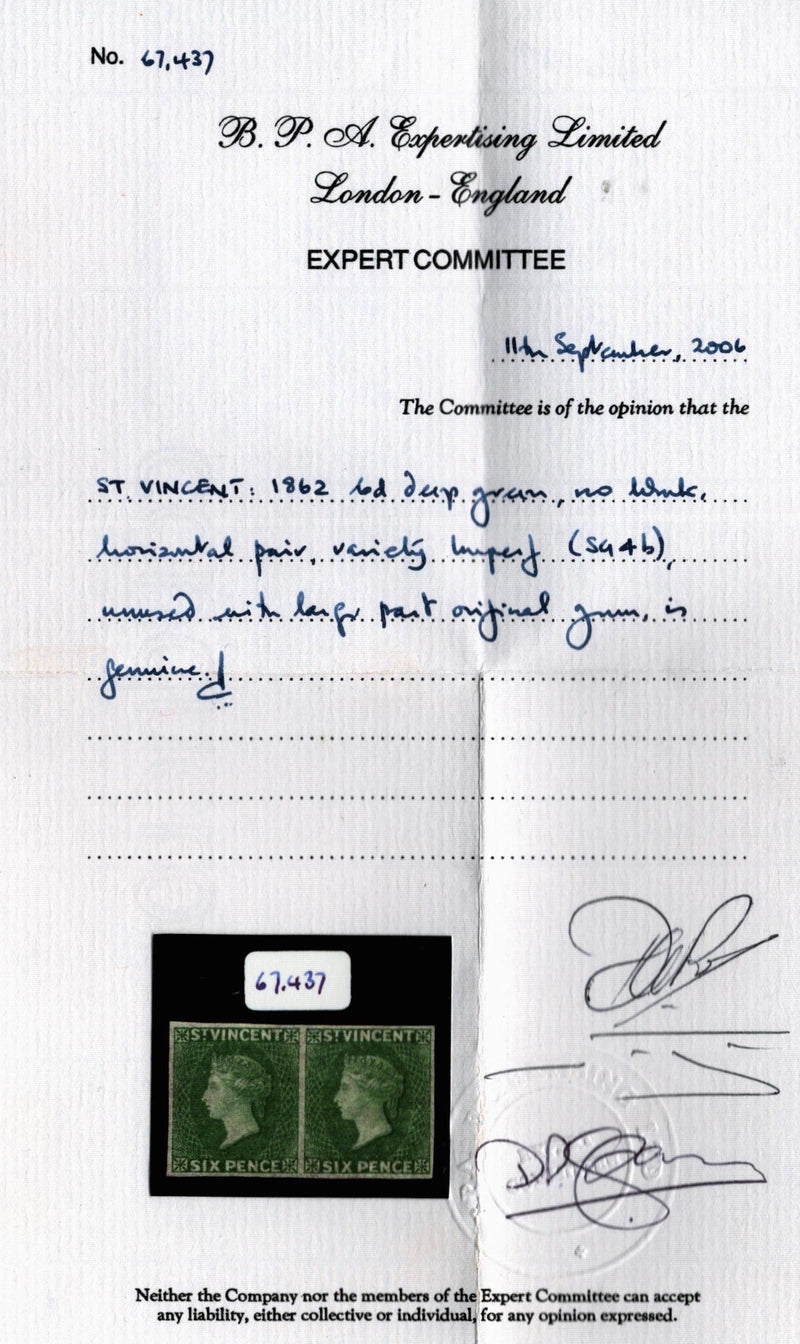 No. 67,437
B. P. A. Expertising Limited
London - England
EXPERT COMMITTEE
11th September, 2006
The Committee is of the opinion that the
ST. VINCENT: 1862 6d deep green, no wmk,
horizontal pair, variety imperf (SG4b),
unused with large part original gum, is
genuine.
67.437
ST VINCENT ST VINCENT
SIX PENCE SIX PENCE
Neither the Company nor the members of the Expert Committee can accept
any liability, either collective or individual, for any opinion expressed.